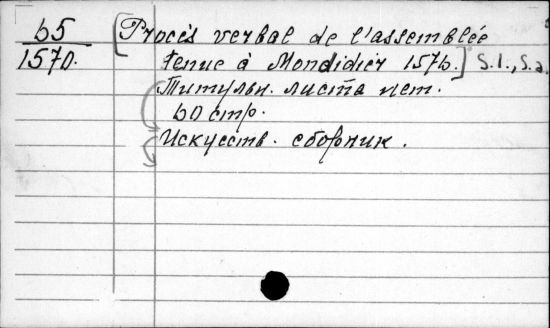 65
1570.
[Procès verbal de l'assemblée
tenue à Mondidier 1576.] S.l., S.a.
Титульн. листа нет.
60 стр.
Искусств. сборник.